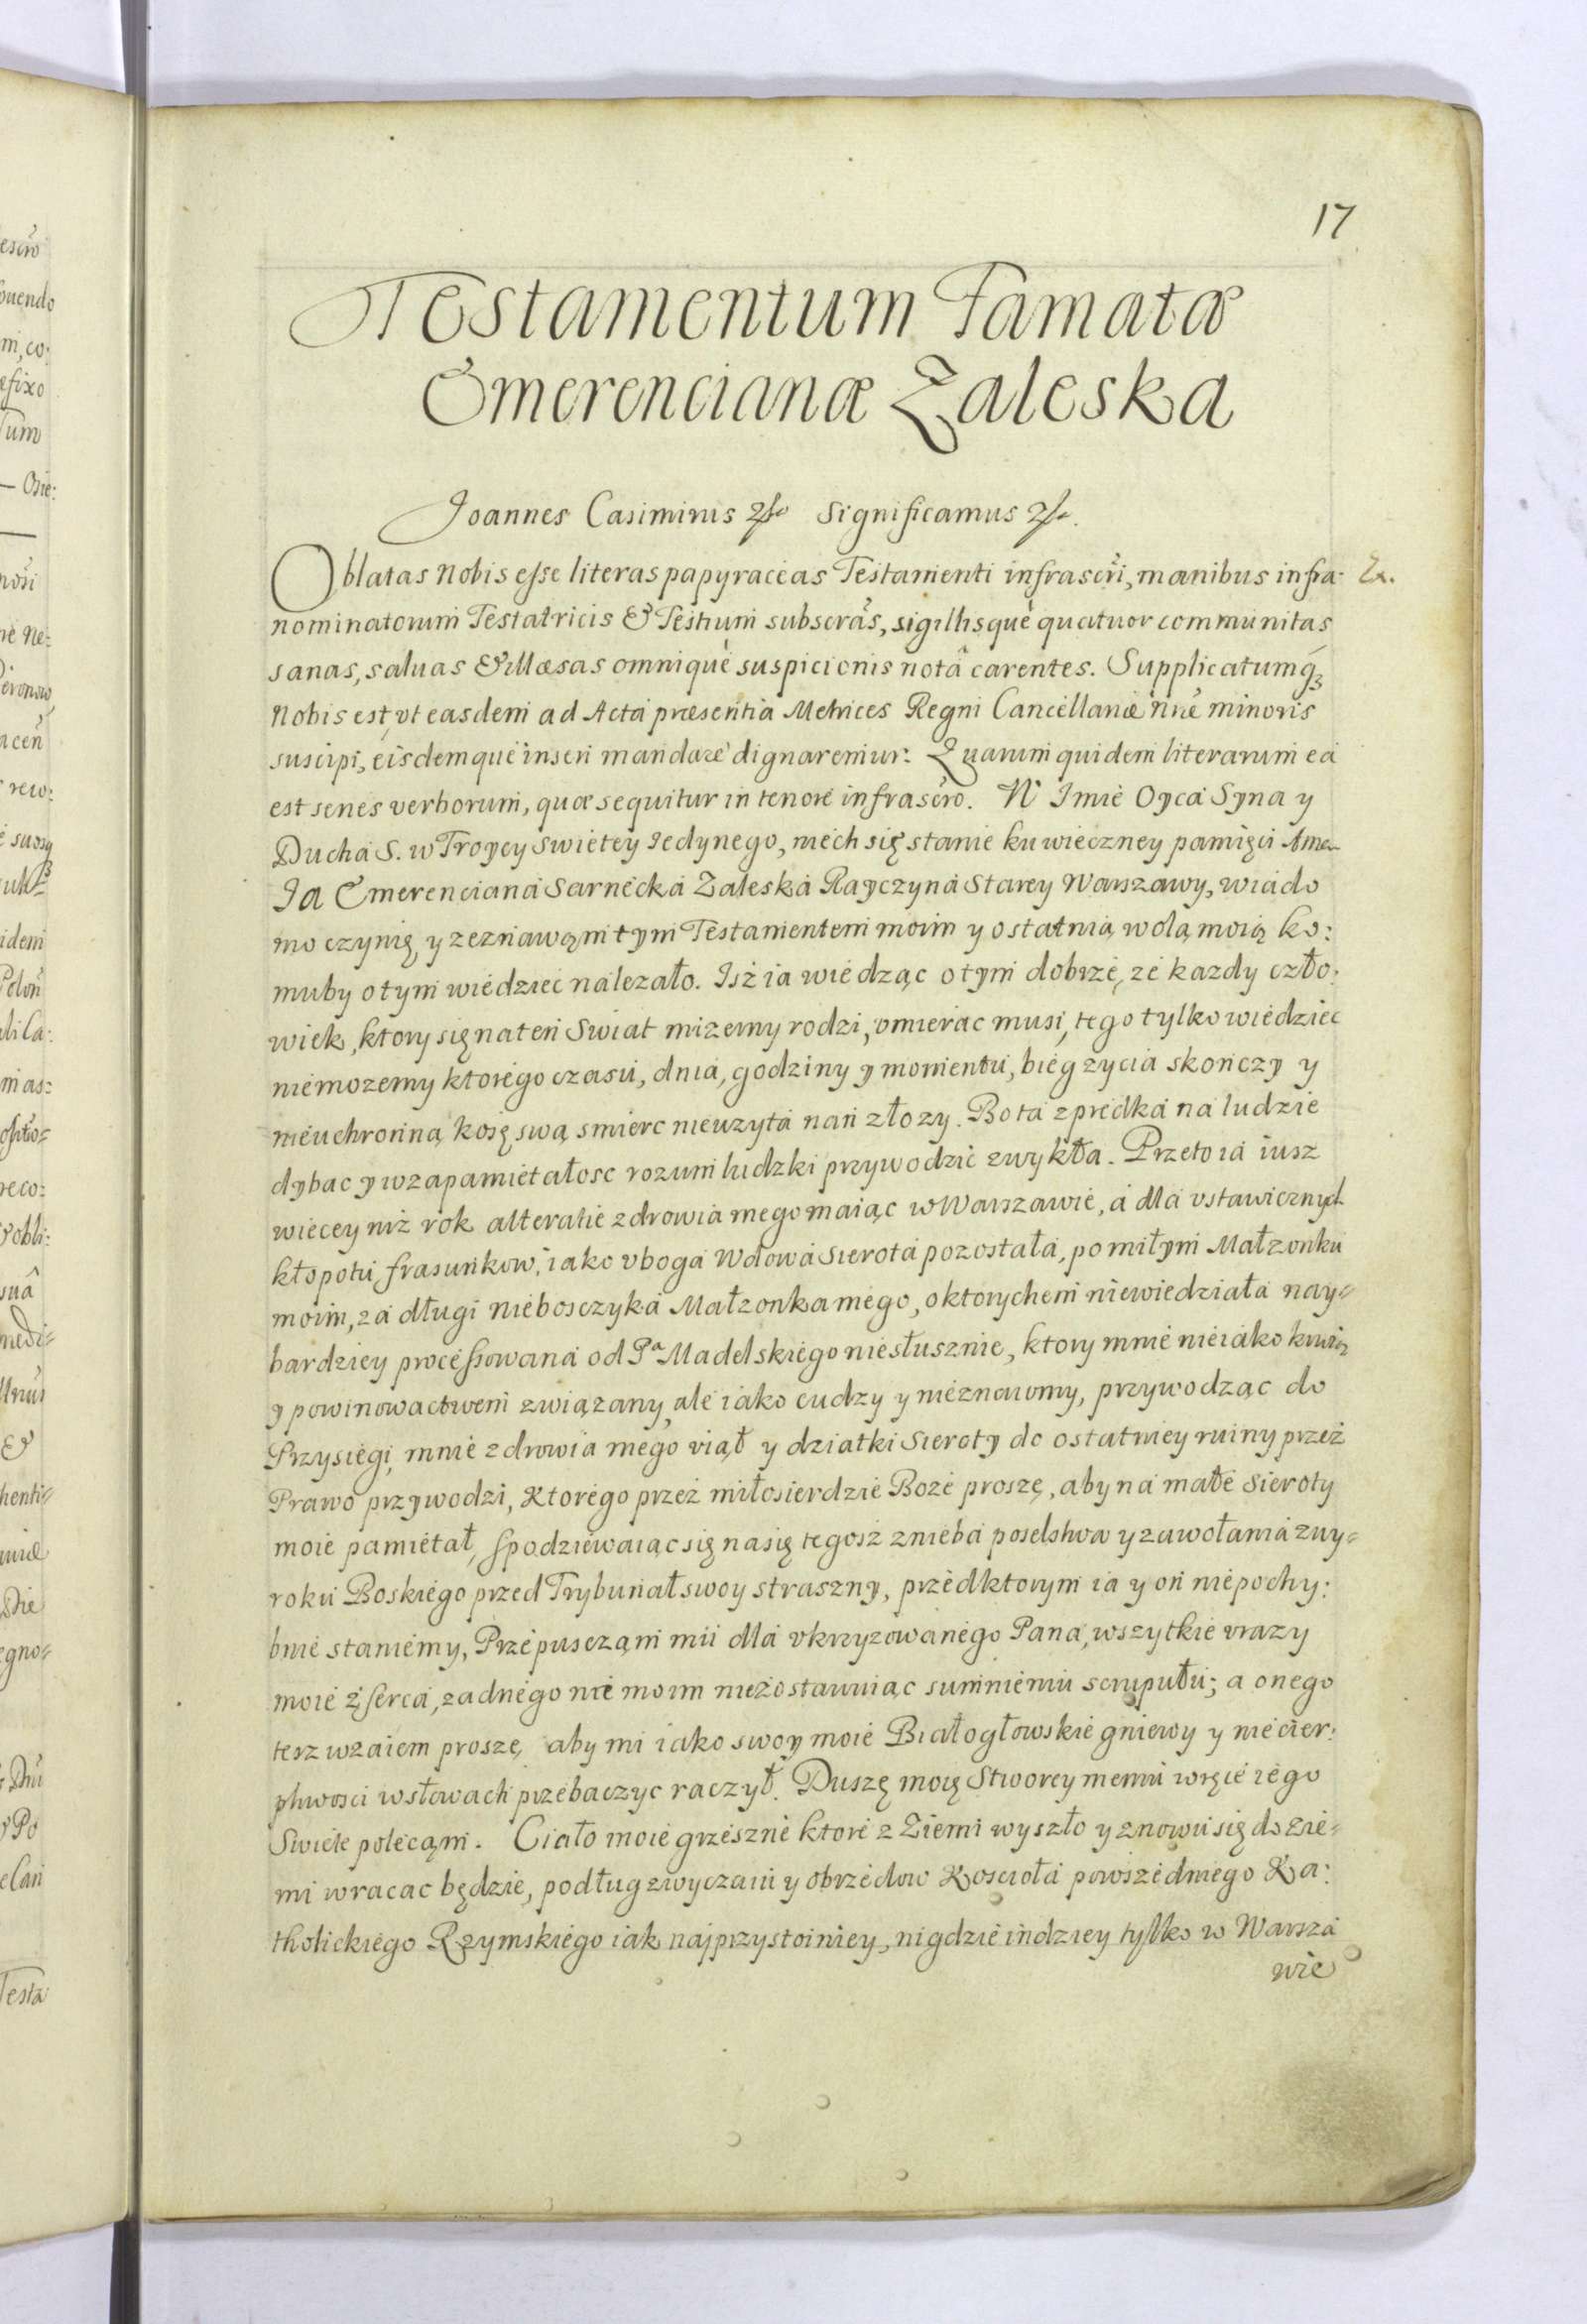 17
Testamentum Famatæ
Emerencianæ Zaleska
Joannes Casimirus Significamus
Oblatas Nobis esse literas papyraceas Testamenti infrascri, manibus infra:
nominatorum Testatricis & Testium subscras, sigillisque quatuor communitas
sanas, saluas & illæsas omnique suspicionis notâ carentes. Supplicatumq3
Nobis est, vt easdem ad Acta præsentia Metrices Regni Cancellariæ nræ minoris
suscipi, eisdemque inseri mandare dignaremur: Quarum quidem literarum ea
est series verborum, quæ sequitur in tenore infrascro. W Imie Oyca Syna y
Ducha S. w Troycy Swietey Iedynego, niech się stanie ku wieczney pamięci Amen
Ia Emerenciana Sarnecka Zaleska Rayczyna Starey Warszawy, wiado
mo czynię, y zeznawam tym Testamentem moim y ostatnią wolą moią ko:
muby o tym wiedziec nalezało. Isz ia wiedząc o tym dobrze, ze kazdy czło:
wiek, ktory się na ten Swiat mizerny rodzi, vmierac musi, tego tylko wiedziec
niemozemy ktorego czasu, dnia, godziny y momentu, bieg zycia skończy y
nieuchronną kosę swą smierc nieuzyta nań złozy. Bo ta zpredka na ludzie
dybac y wzapamietałosc rozum ludzki przywodzic zwykła. Przeto ia iusz
wiecey niz rok alteratie zdrowia mego maiąc w Warszawie, a dla vstawicznych
kłopotu, frasunkow, iako vboga Wdowa Sierota pozostała, po miłym Małzonku
moim, za długi nieboszczyka Małzonka mego, o ktorychem niewiedziała nay=
bardziey processowana od Pa Madelskiego niesłusznie, ktory mnie nieiako krwią
y powinowactwem związany, ale iako cudzy y nieznaiomy, przywodząc do
Przysiegi, mnie zdrowia mego viął y dziatki Sieroty do ostatniey ruiny przez
Prawo przywodzi, ktorego przez miłosierdzie Boze proszę, aby na małe Sieroty
moie pamietał, spodziewaiąc się na się tegosz znieba poselstwa y zawołania zwy=
roku Boskiego przed Trybunał swoy straszny, przed ktorym ia y on niepochy:
bnie staniemy, Przepuszczam mu dla vkrzyzowanego Pana, wszytkie vrazy
moie z serca, zadnego nie moim niezostawuiąc sumnieniu scrupułu; a onego
tesz wzaiem proszę, aby mi iako swoy moie Białogłowskie gniewy y niecier:
pliwosci w słowach przebaczyc raczył. Duszę moię Stworcy memu w ręce iego
Swiete polecam. Ciało moie grzeszne ktore z Ziemi wyszło y znowu się do zie=
mi wracac będzie, podług zwyczaiu y obrzedow Koscioła powszedniego Ka:
tholickiego Rzymskiego iak najprzystoiniey, nigdzie indziey tylko w Warsza
wie